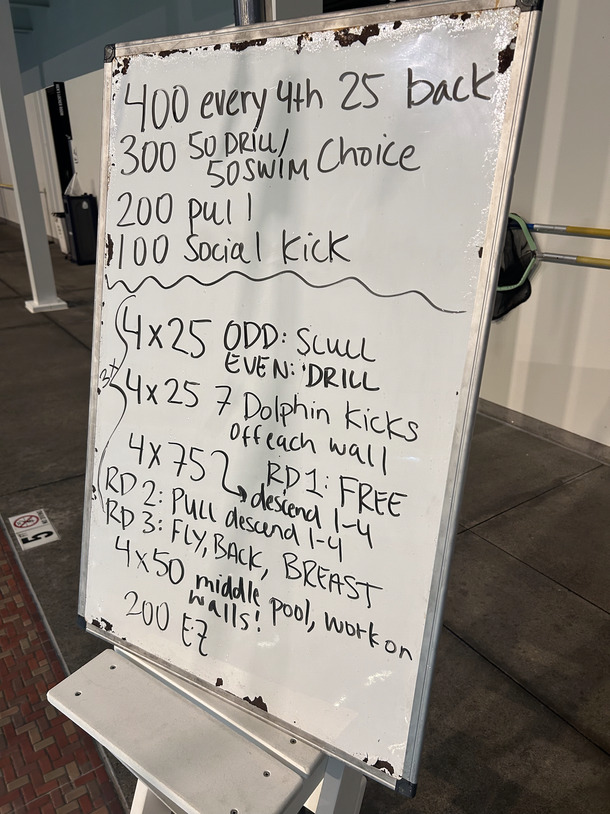 400 every 4th 25 back
300 50 DRILL/
50 SWIM Choice
200 pull
100 Social Kick
4x25 ODD: SCULL
EVEN: DRILL
3x
4x25 7 Dolphin Kicks
off each wall
4x75 RD 1: FREE
descend 1-4
RD 2: PULL descend 1-4
RD 3: FLY, BACK, BREAST
4x50 middle pool, work on
walls!
200 EZ
5